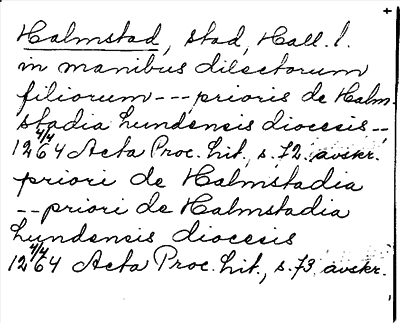 Halmstad, stad, Hall. l.
in manibus dilectorum
filiorum --- prioris de Halm-
stadia Lundensis diocesis --
12 4/4 64 Acta Proc. Lit., s. 72. avskr.
priori de Halmstadia
-- priori de Halmstadia
Lundensis diocesis
12 4/4 64 Acta Proc. Lit., s. 73, avskr.